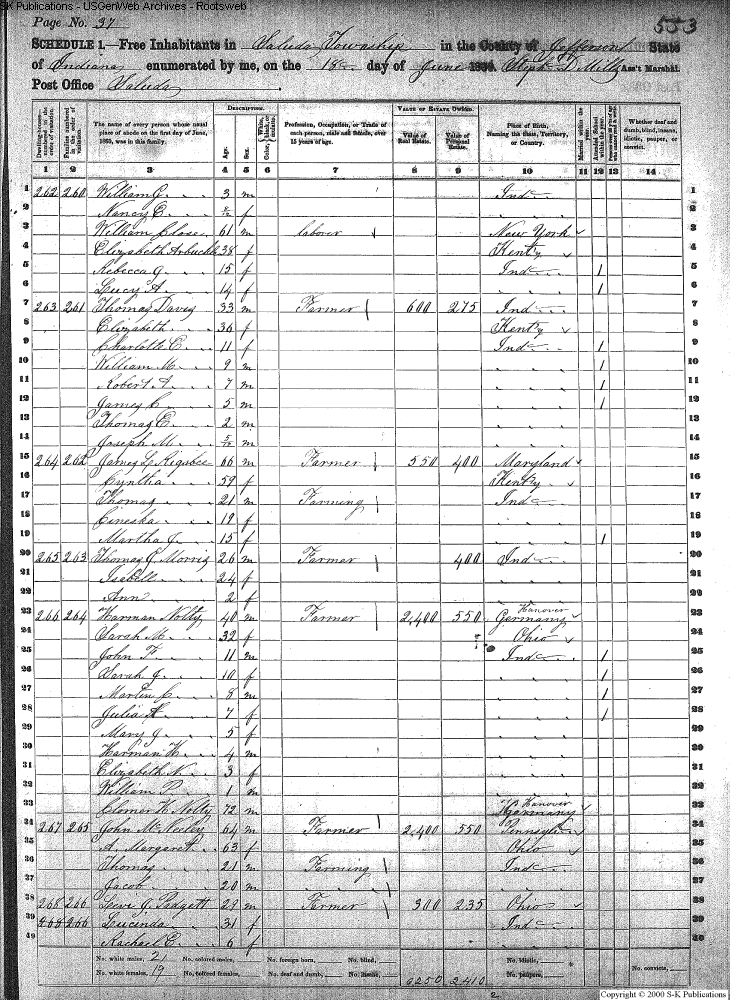 S-K Publications - USGenWeb Archives - Rootsweb
Page No. 37
553
SCHEDULE 1.—Free Inhabitants in Saluda Township in the County of Jefferson State
of Indiana enumerated by me, on the 18 day of June 1860. Ass't Marshal.
Post Office Saluda
DESCRIPTION. VALUE OF ESTATE OWNED.
Dwelling-houses—numbered in the order of visitation. Families numbered in the order of visitation. The name of every person whose usual place of abode on the first day of June, 1860, was in this family. Age. Sex. Color, White, black, or mulatto. Profession, Occupation, or Trade of each person, male and female, over 15 years of age. Value of Real Estate. Value of Personal Estate. Place of Birth, Naming the State, Territory, or Country. Married within the year. Attended School within the year. Whether deaf and dumb, blind, insane, idiotic, pauper, or convict.
1 2 3 4 5 6 7 8 9 10 11 12 13 14
1 262 260 William G. 3 m Ind 1
2 Nancy E. f " 2
3 William Close 61 m laborer New York 3
4 Elizabeth Arbuckle 38 f Kenty 4
5 Rebecca J. 15 f Ind 1 5
6 Lucy A. 14 f " 1 6
7 263 261 Thomas Davis 33 m Farmer 600 275 Ind 7
8 Elizabeth 36 f Kenty 8
9 Charlotte E. 11 f Ind 1 9
10 William M. 9 m " 1 10
11 Robert A. 7 m " 1 11
12 James C. 5 m " 1 12
13 Thomas E. 2 m " 13
14 Joseph M. 5/12 m " 14
15 264 262 James L. 66 m Farmer 550 400 Maryland 15
16 Cyntha 59 f Kenty 16
17 Thomas 21 m Farming Ind 17
18 19 f " 18
19 Martha J. 15 f " 1 19
20 265 263 Thomas J. Morris 26 m Farmer 400 Ind 20
21 Isabell 24 f " 21
22 Ann 2 f " 22
23 266 264 Harman Nolty 40 m Farmer 2,400 550 Hanover Germany 23
24 Sarah M. 32 f Ohio 24
25 John F. 11 m Ind 1 25
26 Sarah J. 10 f " 1 26
27 Martin C. 8 m " 1 27
28 Julia A. 7 f " 1 28
29 Mary J. 5 f " 29
30 Harman H. 4 m " 30
31 Elizabeth N. 3 f " 31
32 William P. 1 m " 32
33 Nolty 72 m Hanover Germany 33
34 267 265 John 64 m Farmer 2,400 550 Pennsyl 34
35 A. Margaret 63 f Ohio 35
36 Thomas 21 m Farming Ind 36
37 Jacob 20 m " " 37
38 268 266 Levi J. Padgett 29 m Farmer 300 235 Ohio 38
39 268 266 Lucinda 31 f Ind 39
40 Rachael E. 6 f " 40
No. white males, 21 No. colored males, No. foreign born, No. blind, No. idiotic, No. convicts,
No. white females, 19 No. colored females, No. deaf and dumb, No. insane, 6250 2410 No. paupers,
2
Copyright © 2000 S-K Publications